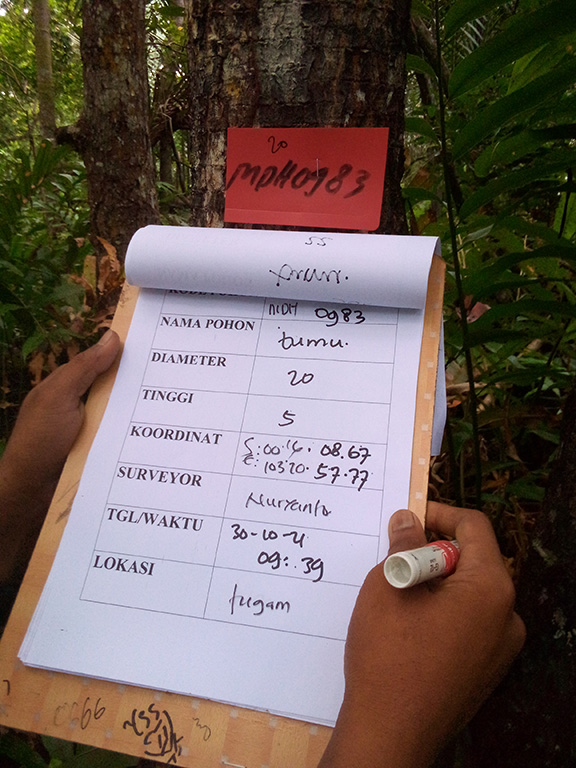 20
MDH0983
55
NAMA POHON
tumu.
0983
DIAMETER
20
TINGGI
5
KOORDINAT
S:00 16. 08.67
E:103 20. 57.77
SURVEYOR
Nuryanto
TGL/WAKTU
30-10-21
09:.39
LOKASI
tugam